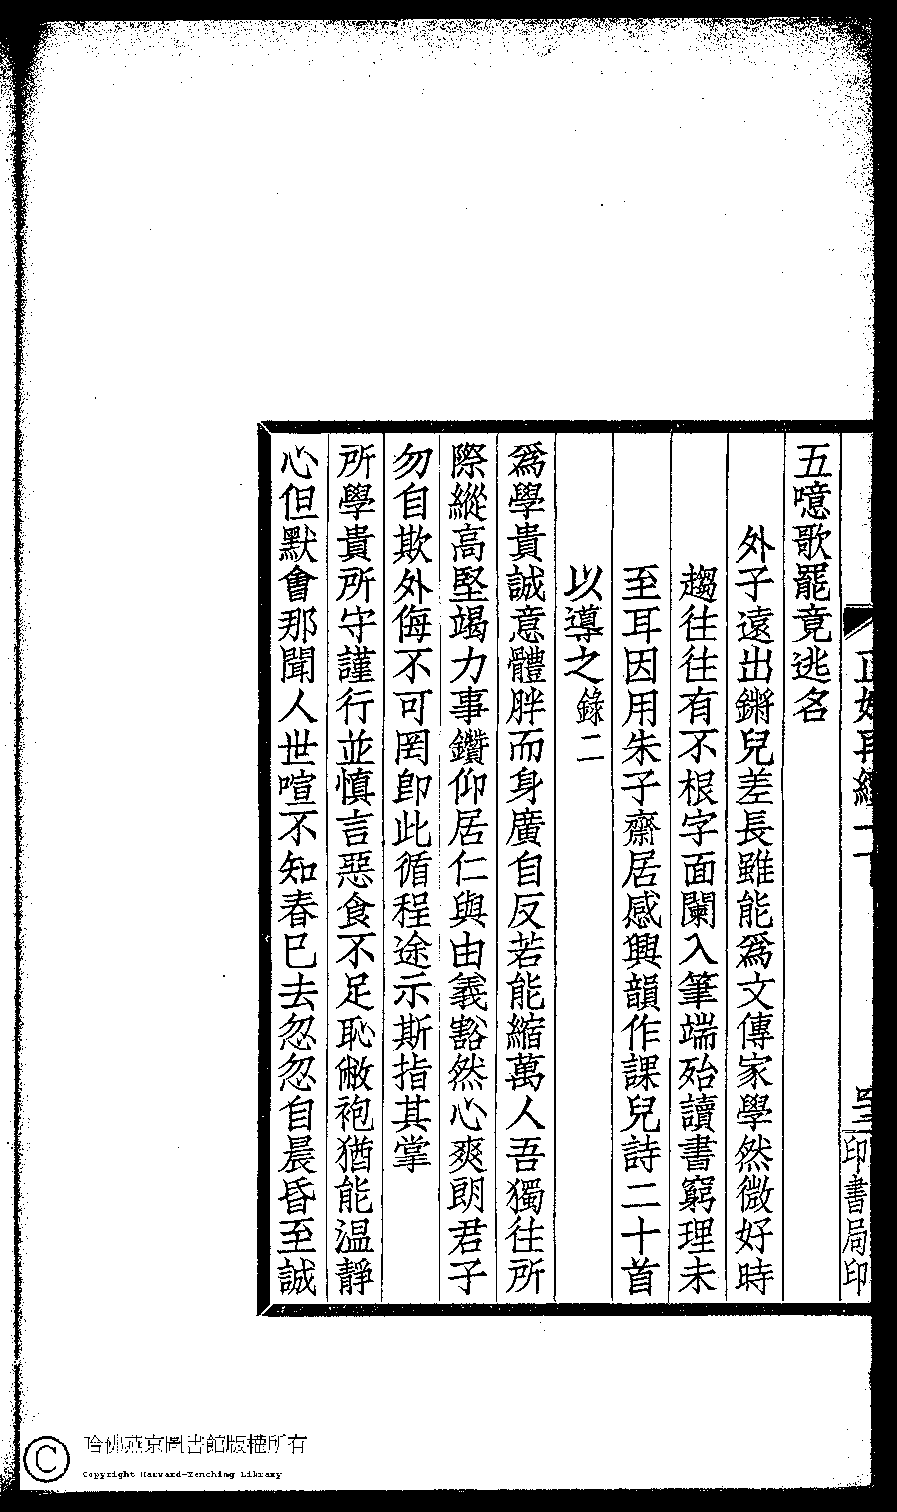 五噫歌罷竟逃名
外子遠出鏘兒差長雖能爲文傳家學然微好時
趨往往有不根字面闌入筆端殆讀書窮理未
至耳因用朱子齋居感興韻作課兒詩二十首
以導之錄二
爲學貴誠意體胖而身廣自反若能縮萬人吾獨往所
際縱高堅竭力事鑽仰居仁與由義豁然心爽朗君子
勿自欺外侮不可罔卽此循程途示斯指其掌
所學貴所守謹行並慎言惡食不足恥敝袍猶能温靜
心但默會那聞人世喧不知春巳去忽忽自晨昏至誠
印書局印
哈佛燕京圖書館版權所有
Copyright Harvard-Yenching Library